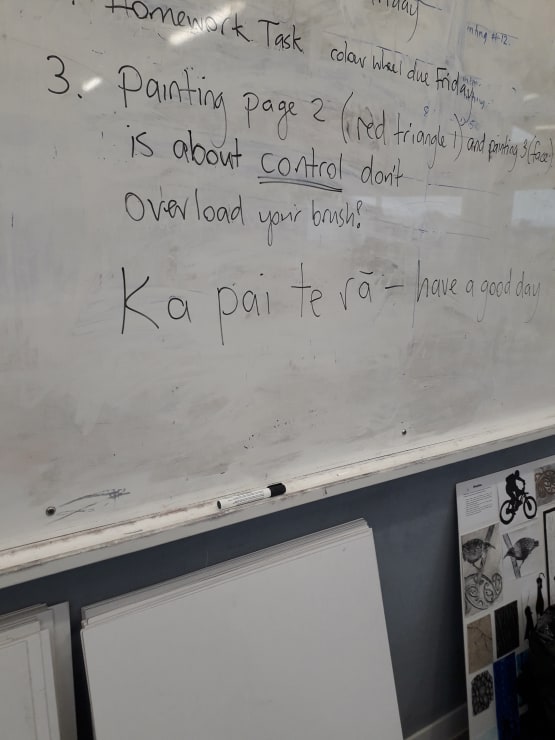 Homework Task
colour wheel due Friday
3. Painting page 2 (red triangle 1) and painting 3 (face)
is about control don't
overload your brush!
Ka pai te rā - have a good day